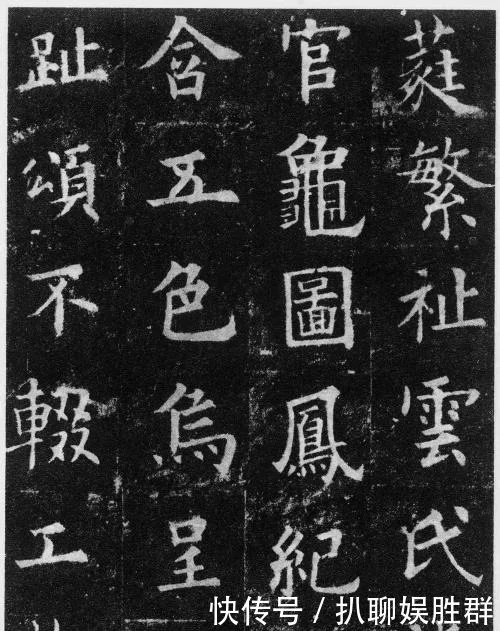 蕤繁祉雲氏
官龜圖鳳紀
含五色烏呈
趾頌不輟工
快传号 / 扒聊娱胜群